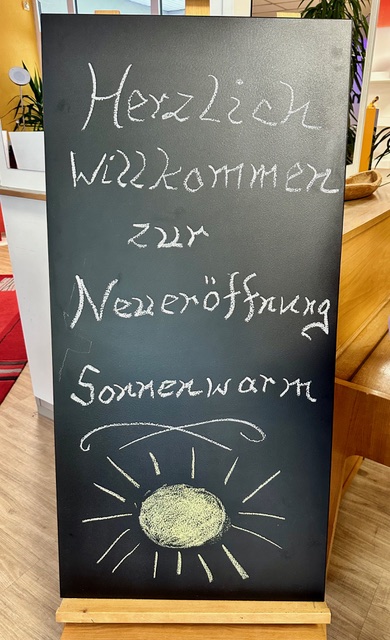 Herzlich
Willkommen
zur
Neueröffnung
Sonnenwarm